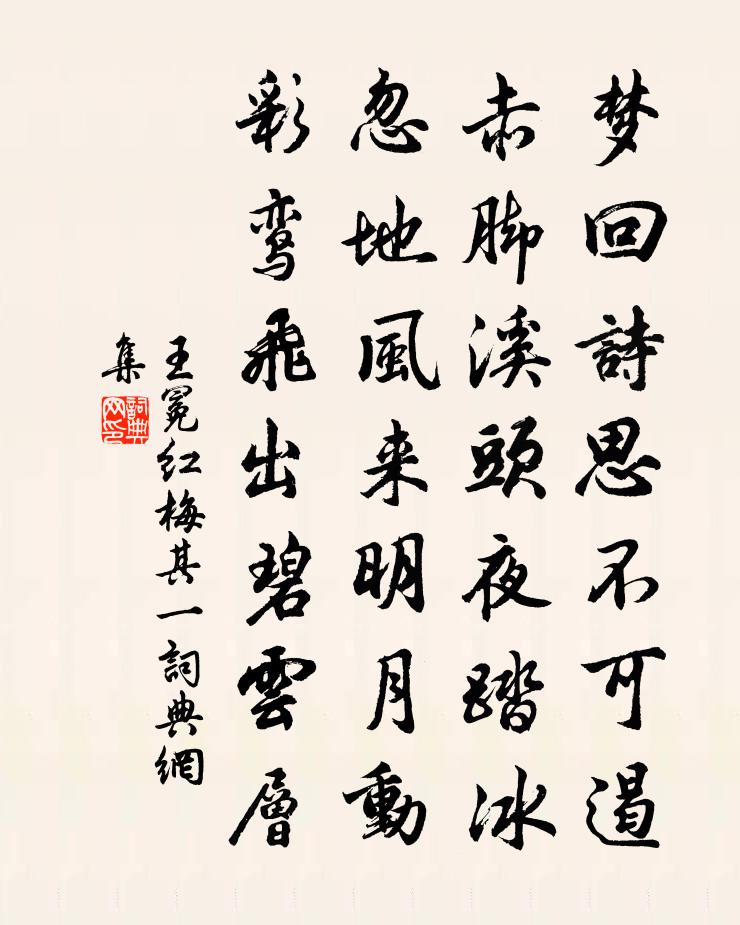 梦回詩思不可遏
赤脚溪頭夜踏冰
忽地風来明月動
彩鸾飛出碧雲層
王冕红梅其一詞典網
集
詞典
网印